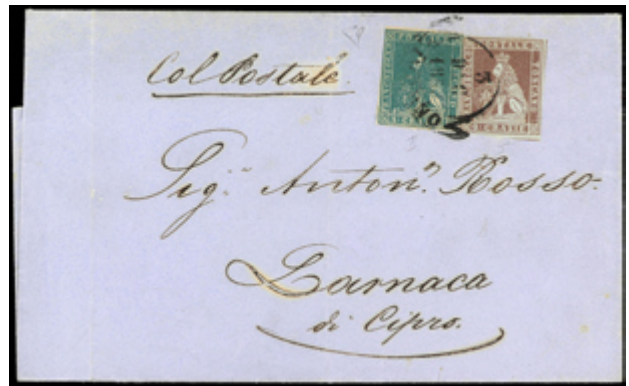 Col Postale
Sig.r Anton.o Rosso.
Larnaca
di Cipro.